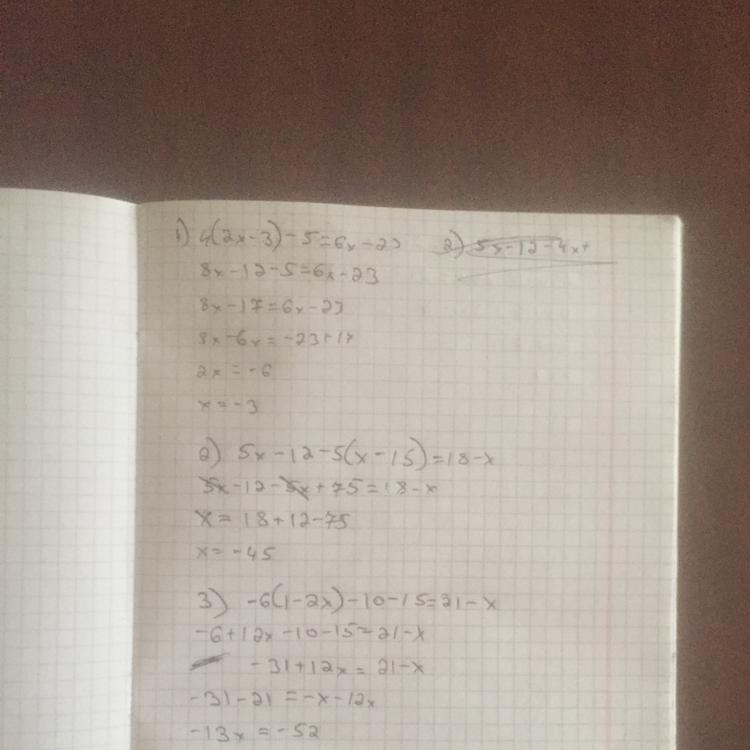 1) 4(2x-3)-5=6x-23
8x-12-5=6x-23
8x-17=6x-23
8x-6x=-23+17
2x=-6
x=-3
2) 5x-12-4x+
2) 5x-12-5(x-15)=18-x
5x-12-5x+75=18-x
x=18+12-75
x=-45
3) -6(1-2x)-10-15=21-x
-6+12x-10-15=21-x
-31+12x=21-x
-31-21=-x-12x
-13x=-52